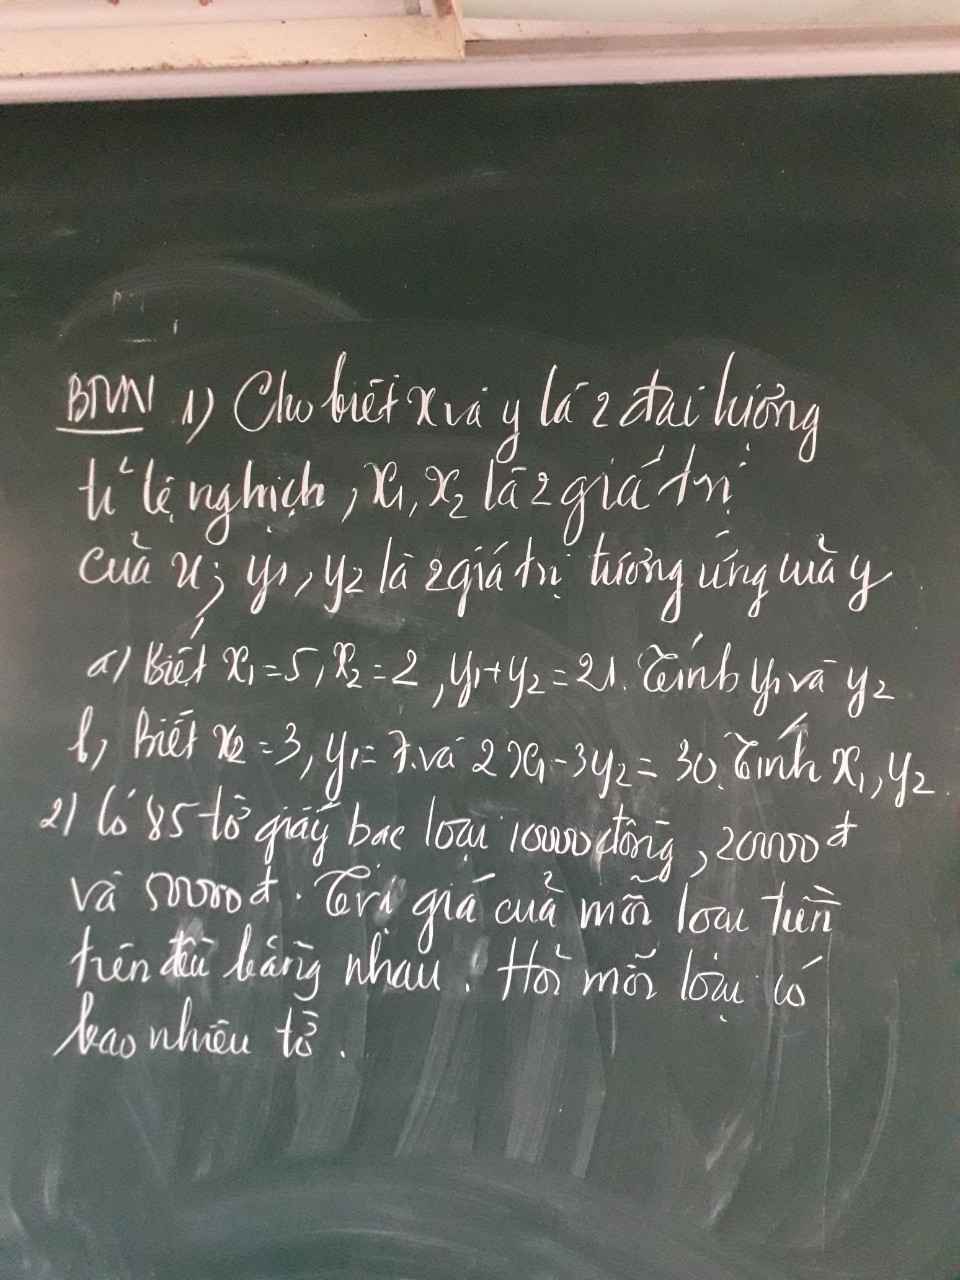 BTVN 1) Cho biết x và y là 2 đại lượng
tỉ lệ nghịch, x1, x2 là 2 giá trị
của x; y1, y2 là 2 giá trị tương ứng của y
a) Biết x1 = 5, x2 = 2, y1 + y2 = 21. Tính y1 và y2
b, Biết x2 = 3, y1 = 7. và 2x1 - 3y2 = 30. Tính x1, y2.
2) Có 85 tờ giấy bạc loại 10000 đồng, 20000đ
và 50000đ. Trị giá của mỗi loại tiền
trên đều bằng nhau. Hỏi mỗi loại có
bao nhiêu tờ.